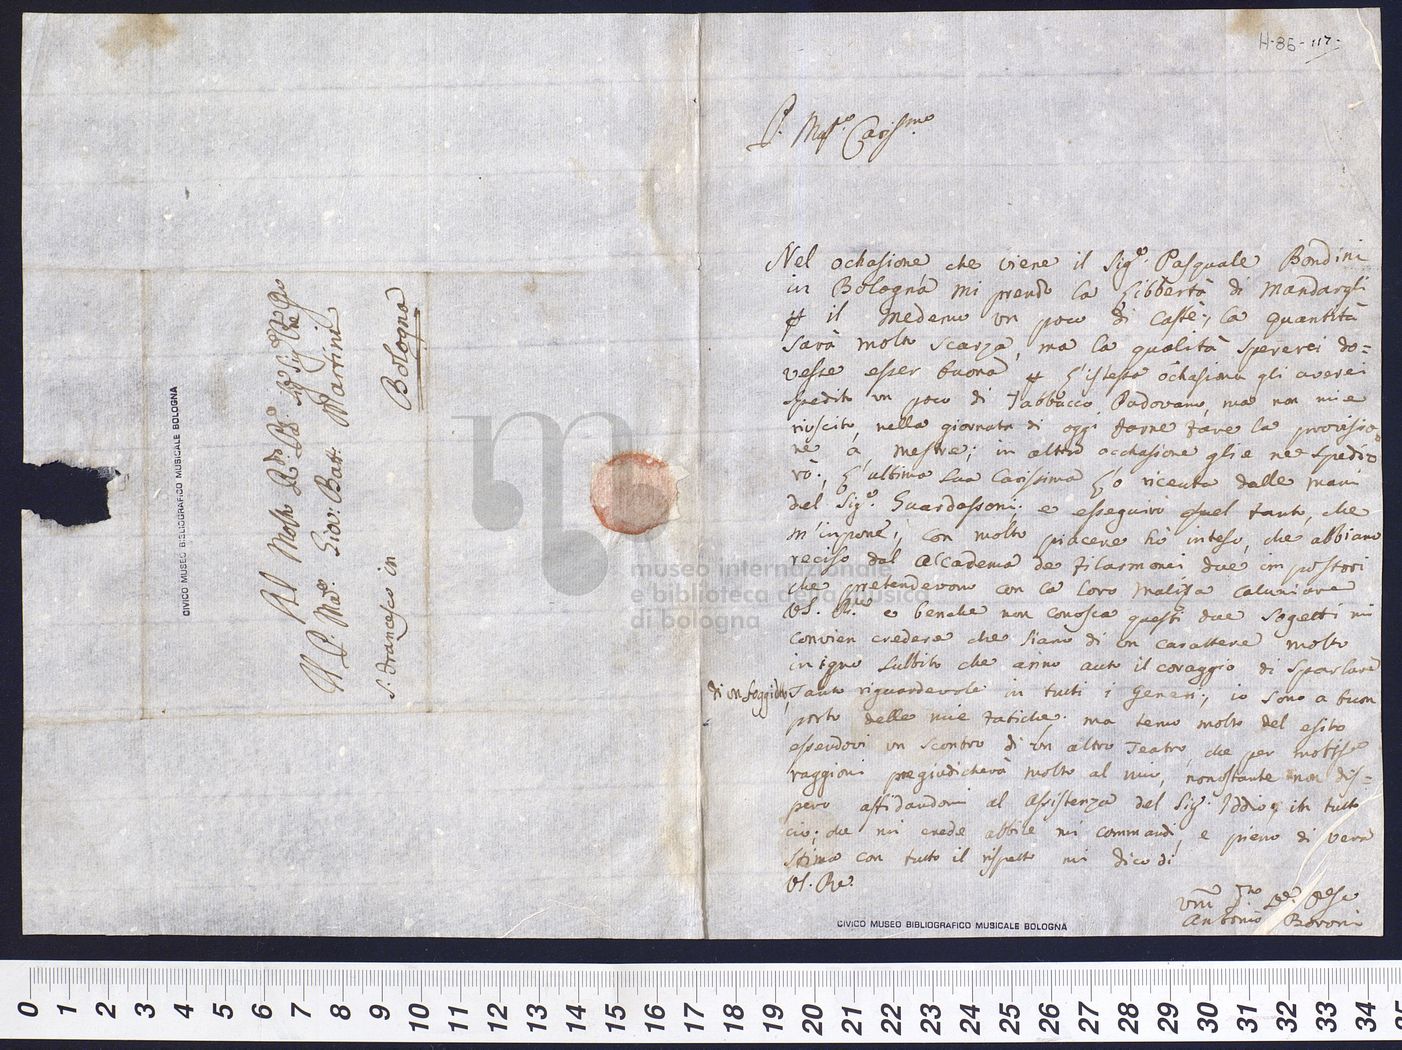 H-86-117-
P. Mstro Carissmo
Nel ochasione che viene il Sigre Pasquale Bondini
in Bologna mi prendo la libbertà di Mandargli
il Medemo un poco di Caffè, la quantità
sarà molto scarza, ma la qualità spererei do=
vesse esser buona l'istessa ochasione gli averei
spedito un poco di Tabbacco Padovano, ma non mi è
riuscito nella giornata di oggi farne fare la provisio
ne a Mestre; in altra occhasione glie ne spedi
rò; l'ultima sua Carissima hò riceuta dalle mani
del Sigre Guardassoni; e esseguirò quel tanto, che
m'impone; con molto piacere hò inteso, che abbiano
reciso dal Accademia de Filarmonci due impostori
che pretendevono con la loro malizia caluniare
VS. Rma e benche non conosca questi due sogetti mi
convien credere che siano di un carattere molto
inigno subbito che anno auto il coraggio di sparlare
di un soggieto, tanto riguardevole in tutti i Generi; io sono a buon
porto delle mie fatiche, ma temo molto del esito
essendovi un scontro di un altro Teatro, che per molte
raggioni pregiudicherà molto al mio, nonostante non dis=
pero affidandomi al Assistenza del Sigr Iddio; in tutto
ciò, che mi crede abbile mi commandi, e pieno di vera
stima con tutto il rispetto mi dico di
VS. Re.
Antonio Boroni
CIVICO MUSEO BIBLIOGRAFICO MUSICALE BOLOGNA
Al Molto Rdo Pre
Il P. Mro Giov: Batt: Martini
S. Francesco in
Bologna
CIVICO MUSEO BIBLIOGRAFICO MUSICALE BOLOGNA
museo internazionale
e biblioteca della musica
di bologna
0 1 2 3 4 5 6 7 8 9 10 11 12 13 14 15 16 17 18 19 20 21 22 23 24 25 26 27 28 29 30 31 32 33 34 35